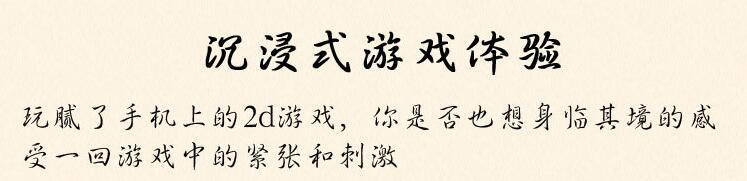 沉浸式游戏体验
玩腻了手机上的2d游戏，你是否也想身临其境的感
受一回游戏中的紧张和刺激